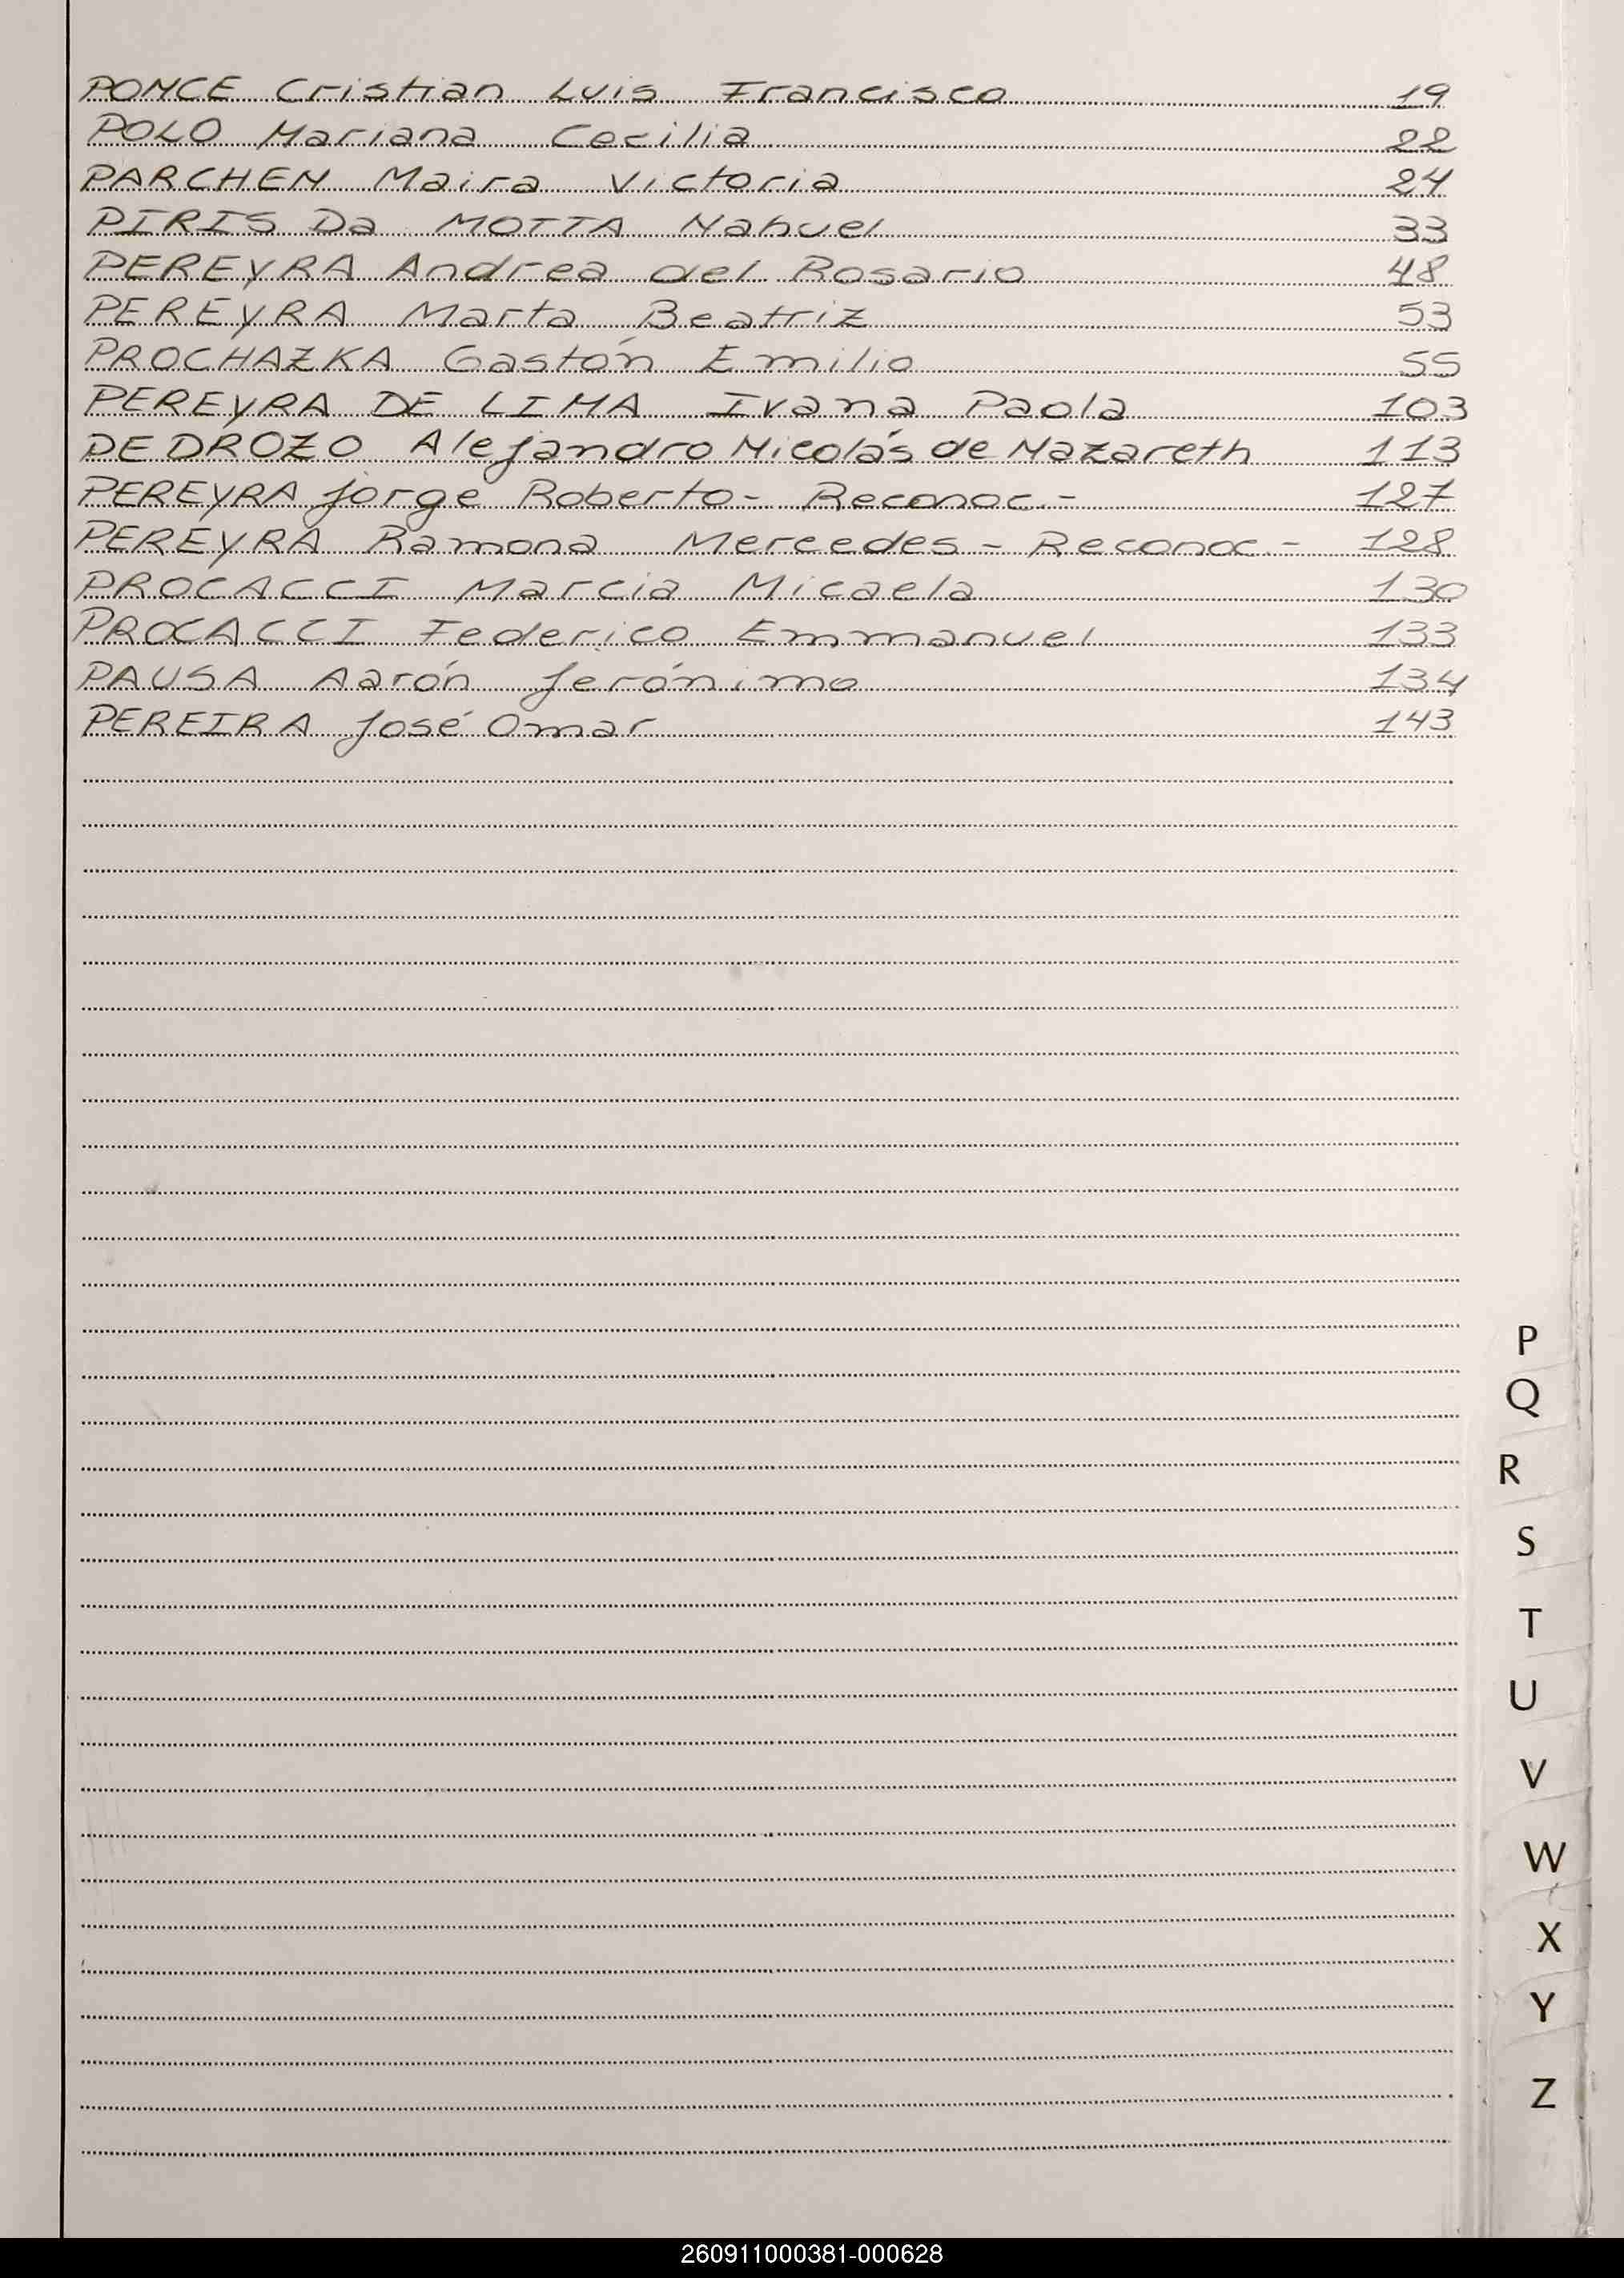 PONCE Cristian Luis Francisco 19
POLO Mariana Cecilia 22
PARCHEN Maira Victoria 24
PIRIS Da MOTTA Nahuel 33
PEREYRA Andrea del Rosario 48
PEREYRA Marta Beatriz 53
PROCHAZKA Gastón Emilio 55
PEREYRA DE LIMA Ivana Paola 103
PEDROZO Alejandro Nicolás de Nazareth 113
PEREYRA Jorge Roberto- Reconoc.- 127
PEREYRA Ramona Mercedes - Reconoc.- 128
PROCACCI Marcia Micaela 130
PROCACCI Federico Emmanuel 133
PAUSA Aarón Jerónimo 134
PEREIRA José Omar 143
P
Q
R
S
T
U
V
W
X
Y
Z
260911000381-000628